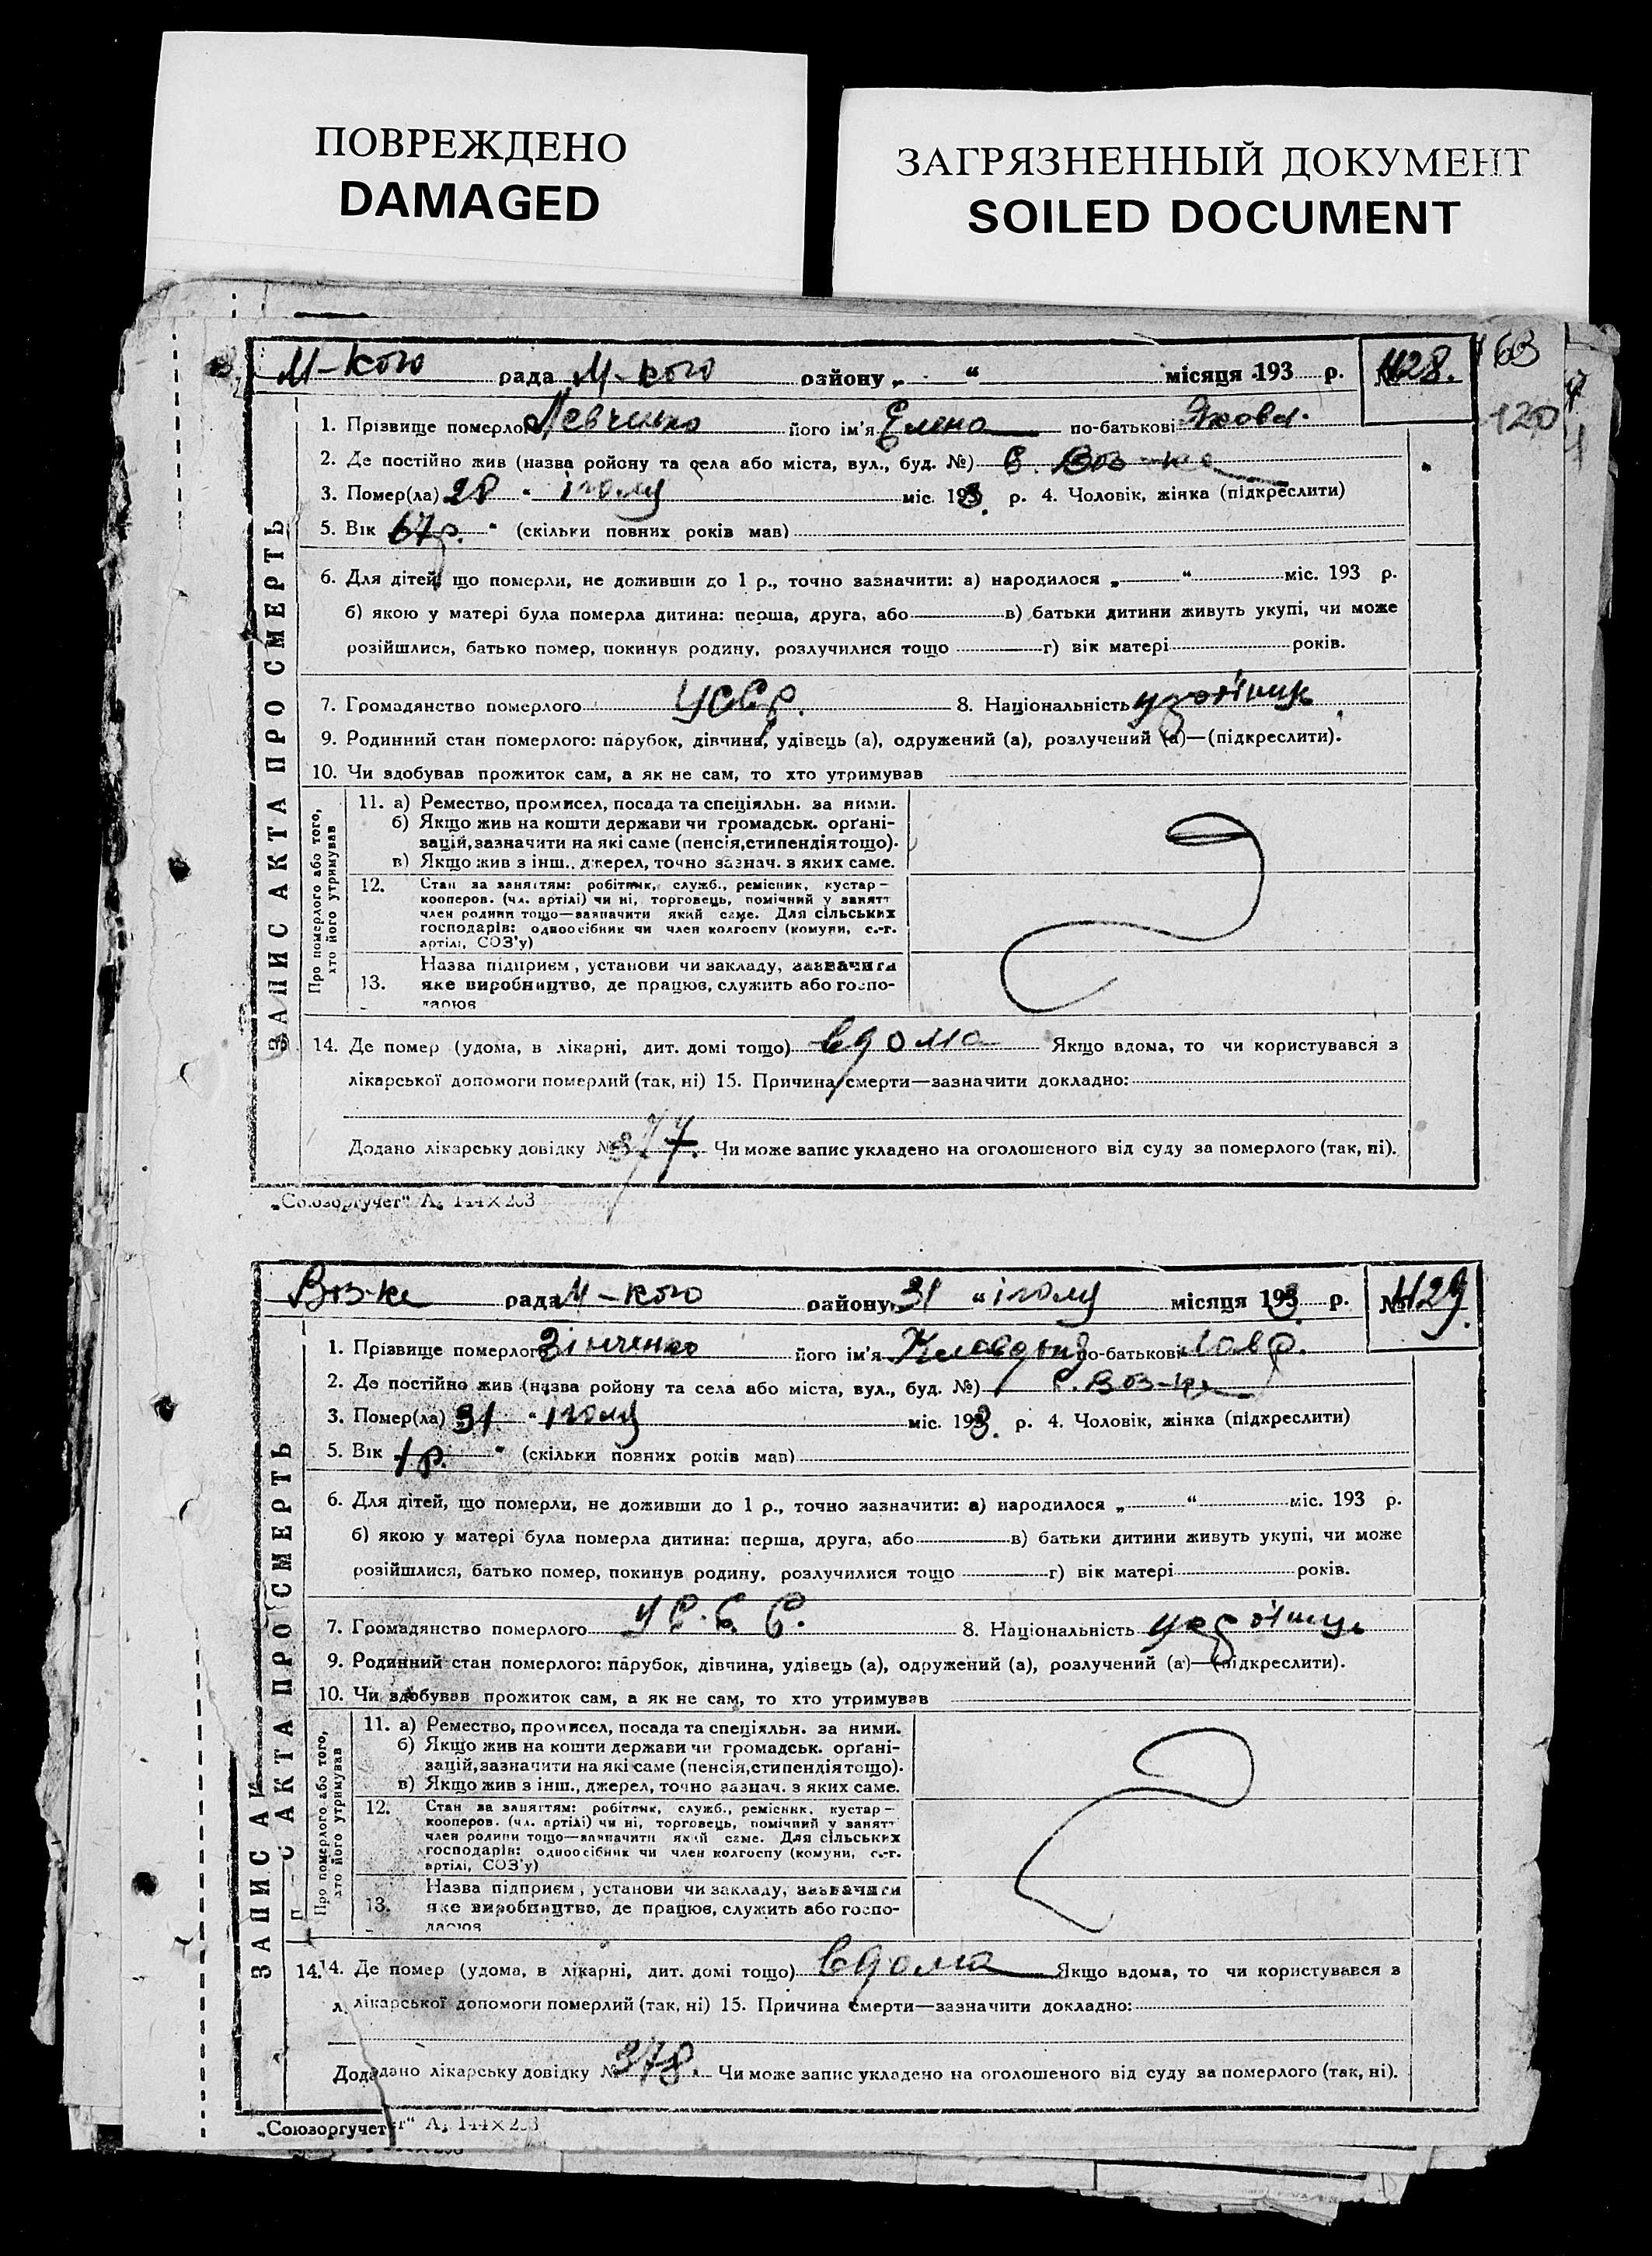 ПОВРЕЖДЕНО
DAMAGED
ЗАГРЯЗНЕННЫЙ ДОКУМЕНТ
SOILED DOCUMENT
163
120
М-кого рада М-кого району „ “ місяця 193 р. № 428.
ЗАПИС АКТА ПРО СМЕРТЬ
1. Прізвище померлого Левченко його ім'я Елена по-батькові Яковл.
2. Де постійно жив (назва ройону та села або міста, вул., буд. №) С. Воз-ке
3. Помер(ла) 28 “ іюля міс. 193 3. р. 4. Чоловік, жінка (підкреслити)
5. Вік 67 р. “ (скільки повних років мав)
6. Для дітей, що померли, не доживши до 1 р., точно зазначити: а) народилося „ “ міс. 193 р.
б) якою у матері була померла дитина: перша, друга, або в) батьки дитини живуть укупі, чи може
розійшлися, батько помер, покинув родину, розлучилися тощо г) вік матері років.
7. Громадянство померлого УССР. 8. Національність
9. Родинний стан померлого: парубок, дівчина, удівець (а), одружений (а), розлучений (а)—(підкреслити).
10. Чи здобував прожиток сам, а як не сам, то хто утримував
Про померлого або того, хто його утримував
11. а) Ремество, промисел, посада та спеціяльн. за ними.
б) Якщо жив на кошти держави чи громадськ. орґані-
зацій, зазначити на які саме (пенсія, стипендія тощо).
в) Якщо жив з інш., джерел, точно зазнач. з яких саме.
12. Стан за заняттям: робітник, служб., ремісник, кустар—
кооперов. (чл. артілі) чи ні, торговець, помічний у занятт
член родини тощо—зазначити який саме. Для сільських
господарів: одноосібник чи член колгоспу (комуни, с.-г.
артілі, СОЗ'у)
13. Назва підприєм, установи чи закладу, зазначити
яке виробництво, де працює, служить або госпо-
дарює
14. Де помер (удома, в лікарні, дит. домі тощо) вдома Якщо вдома, то чи користувався з
лікарської допомоги померлий (так, ні) 15. Причина смерти—зазначити докладно:
Додано лікарську довідку № 377. Чи може запис укладено на оголошеного від суду за померлого (так, ні).
„Союзоргучет“ А₅ 144×203
Воз-ке рада М-кого району 31 “ іюля місяця 193 3. р. № 429.
ЗАПИС АКТА ПРО СМЕРТЬ
1. Прізвище померлого Зінченко його ім'я по-батькові Лавр.
2. Де постійно жив (назва ройону та села або міста, вул., буд. №) с. Воз-ке
3. Помер(ла) 31 “ іюля міс. 193 3. р. 4. Чоловік, жінка (підкреслити)
5. Вік 1 р. “ (скільки повних років мав)
6. Для дітей, що померли, не доживши до 1 р., точно зазначити: а) народилося „ “ міс. 193 р.
б) якою у матері була померла дитина: перша, друга, або в) батьки дитини живуть укупі, чи може
розійшлися, батько помер, покинув родину, розлучилися тощо г) вік матері років.
7. Громадянство померлого 8. Національність
9. Родинний стан померлого: парубок, дівчина, удівець (а), одружений (а), розлучений (а)—(підкреслити).
10. Чи здобував прожиток сам, а як не сам, то хто утримував
Про померлого або того, хто його утримував
11. а) Ремество, промисел, посада та спеціяльн. за ними.
б) Якщо жив на кошти держави чи громадськ. орґані-
зацій, зазначити на які саме (пенсія, стипендія тощо).
в) Якщо жив з інш., джерел, точно зазнач. з яких саме.
12. Стан за заняттям: робітник, служб., ремісник, кустар—
кооперов. (чл. артілі) чи ні, торговець, помічний у занятт
член родини тощо—зазначити який саме. Для сільських
господарів: одноосібник чи член колгоспу (комуни, с.-г.
артілі, СОЗ'у)
13. Назва підприєм, установи чи закладу, зазначити
яке виробництво, де працює, служить або госпо-
дарює
14. Де помер (удома, в лікарні, дит. домі тощо) вдома Якщо вдома, то чи користувався з
лікарської допомоги померлий (так, ні) 15. Причина смерти—зазначити докладно:
Додано лікарську довідку № 378. Чи може запис укладено на оголошеного від суду за померлого (так, ні).
„Союзоргучет“ А₅ 144×203